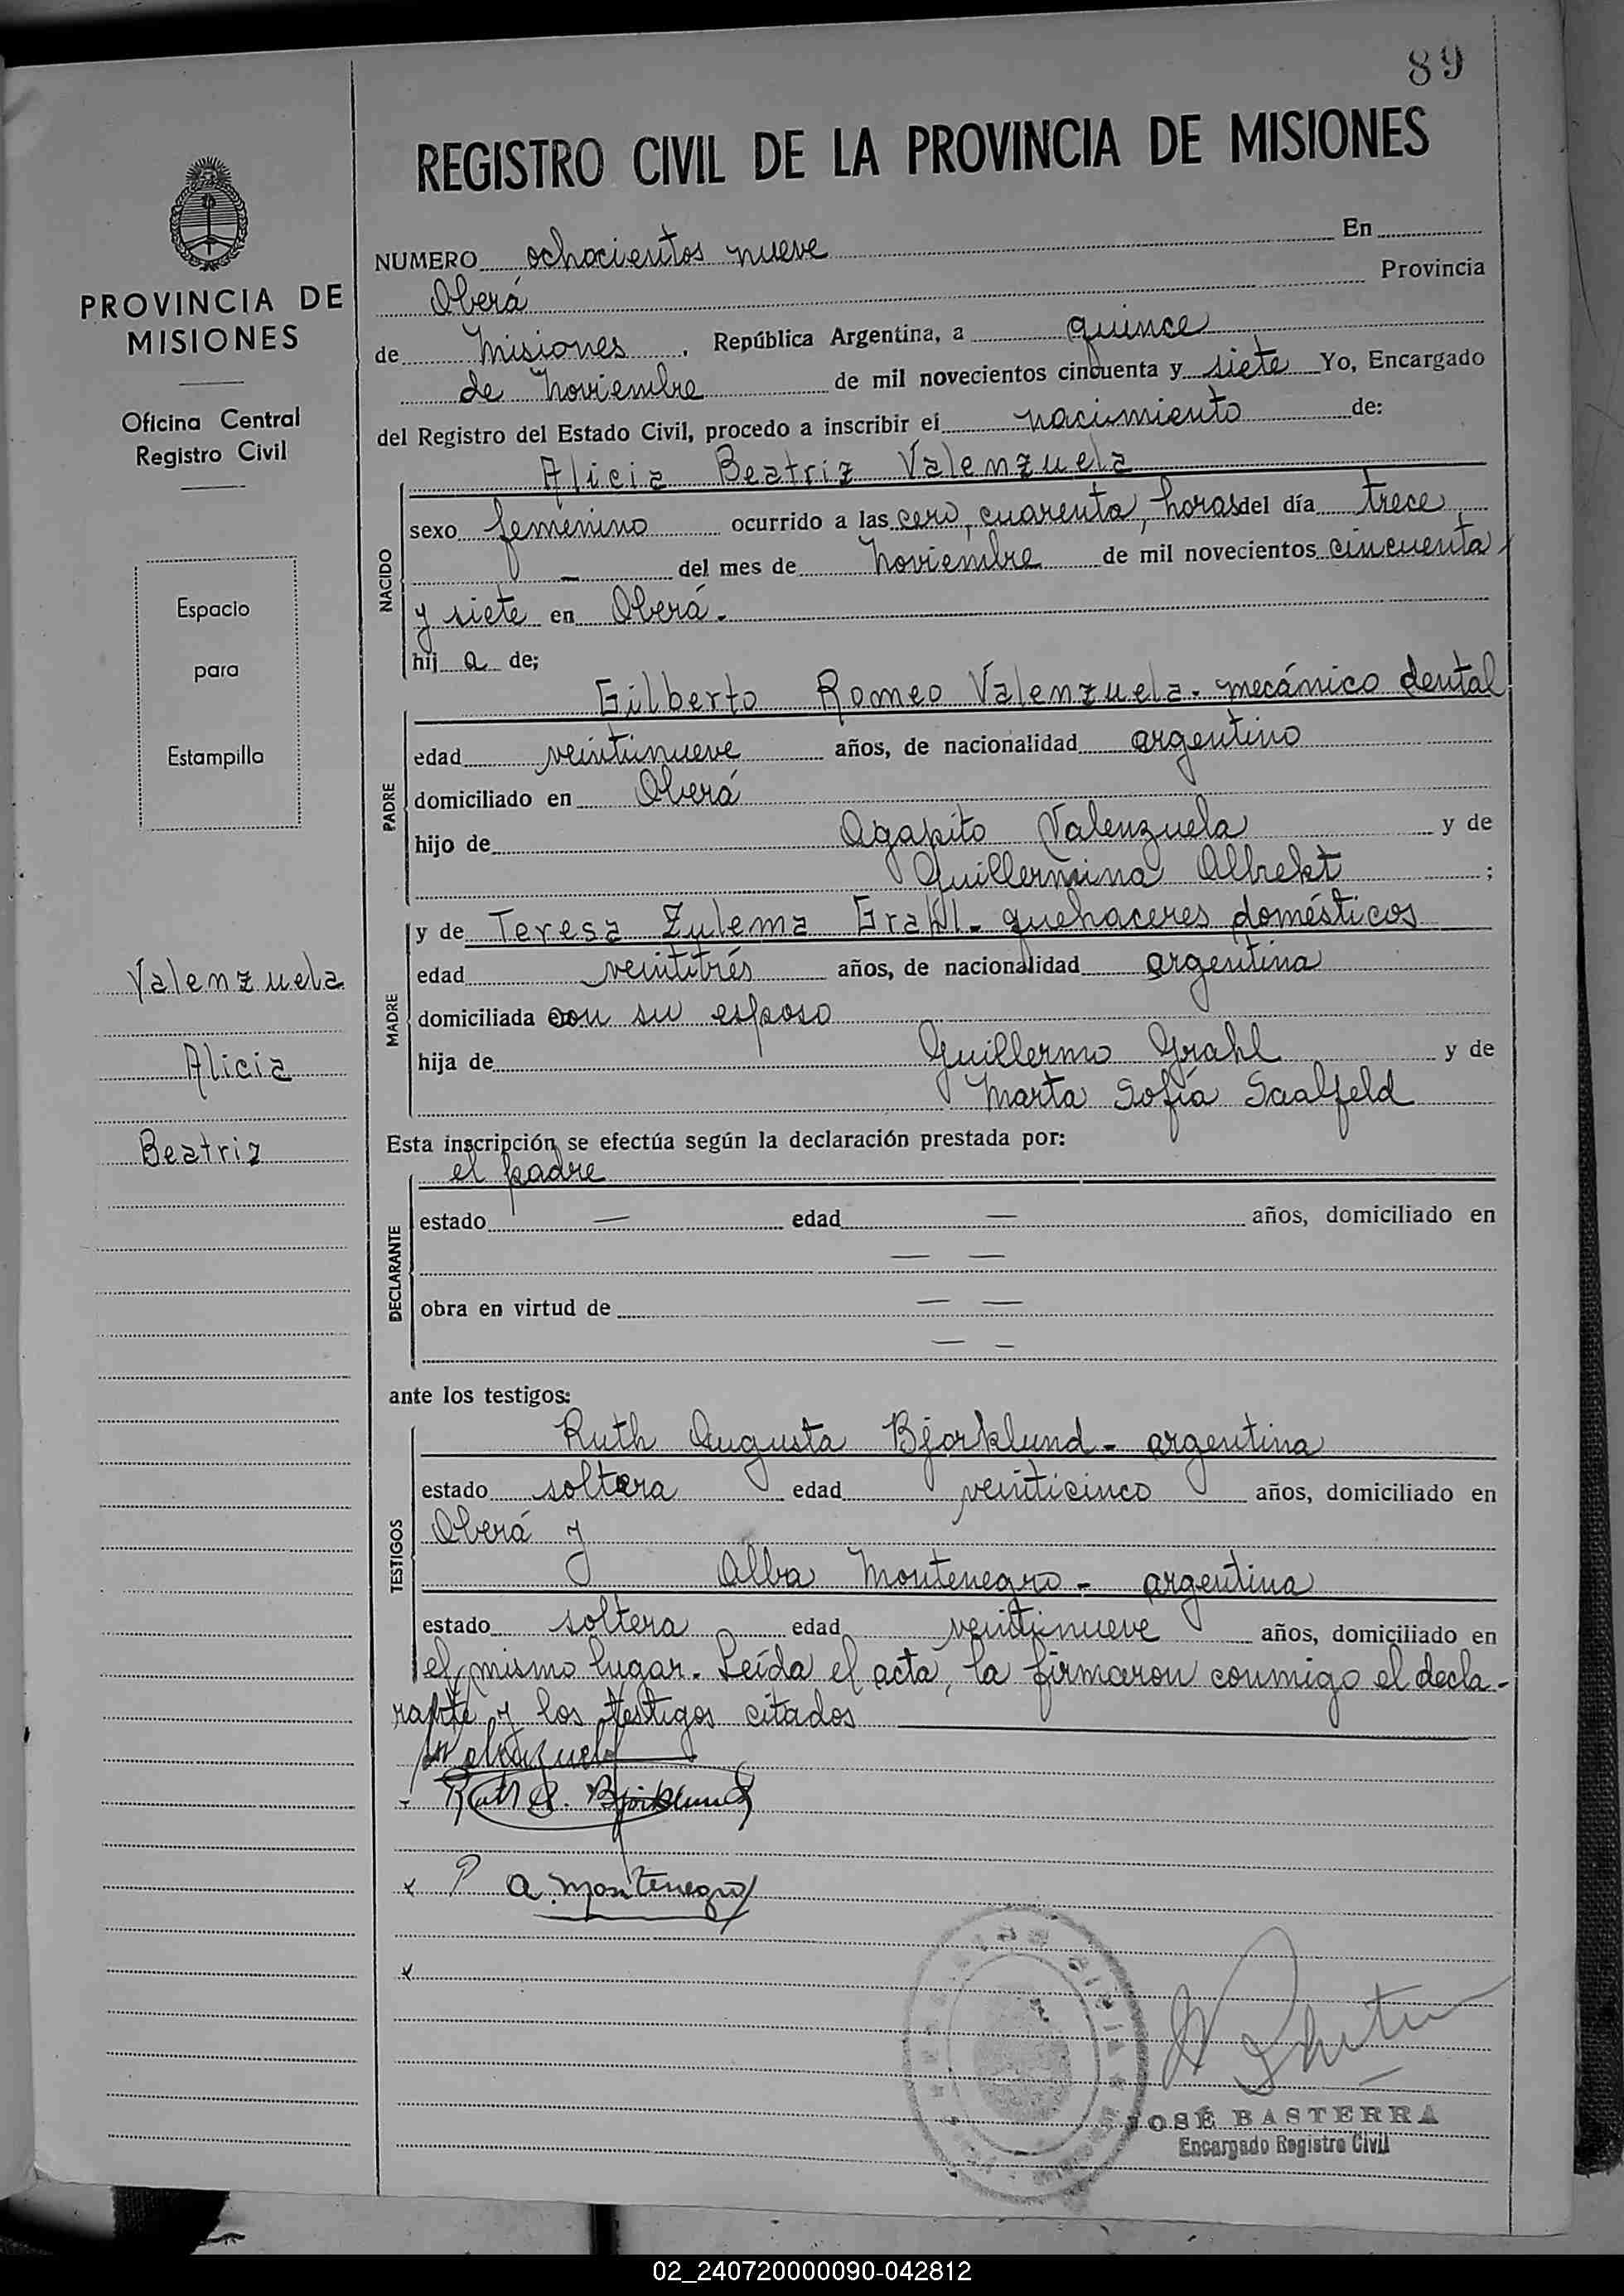 89
REGISTRO CIVIL DE LA PROVINCIA DE MISIONES
PROVINCIA DE
MISIONES
Oficina Central
Registro Civil
Espacio
para
Estampilla
Valenzuela
Alicia
Beatriz
NUMERO ochocientos nueve En
Oberá Provincia
de Misiones, República Argentina, a quince
de Noviembre de mil novecientos cincuenta y siete Yo, Encargado
del Registro del Estado Civil, procedo a inscribir el nacimiento de:
NACIDO
Alicia Beatriz Valenzuela
sexo femenino ocurrido a las cero, cuarenta, horas del día trece
— del mes de Noviembre de mil novecientos cincuenta
y siete en Oberá.
hij a de;
PADRE
Gilberto Romeo Valenzuela - mecánico dental
edad veintinueve años, de nacionalidad argentino
domiciliado en Oberá
hijo de Agapito Valenzuela y de
Guillermina Albrekt ;
MADRE
y de Teresa Zulema Grahl - quehaceres domésticos
edad veintitrés años, de nacionalidad argentina
domiciliada con su esposo
hija de Guillermo Grahl y de
Marta Sofía Saalfeld
Esta inscripción se efectúa según la declaración prestada por:
DECLARANTE
el padre
estado — edad — años, domiciliado en
— —
obra en virtud de — —
— —
ante los testigos:
TESTIGOS
Ruth Augusta Bjorklund - argentina
estado soltera edad veinticinco años, domiciliado en
Oberá y
Alba Montenegro - argentina
estado soltera edad veintinueve años, domiciliado en
el mismo lugar. Leída el acta, la firmaron conmigo el decla-
rante y los testigos citados
Valenzuela
Ruth A. Björklund
x A. Montenegro
x
JOSÉ BASTERRA
Encargado Registro Civil
02_240720000090-042812